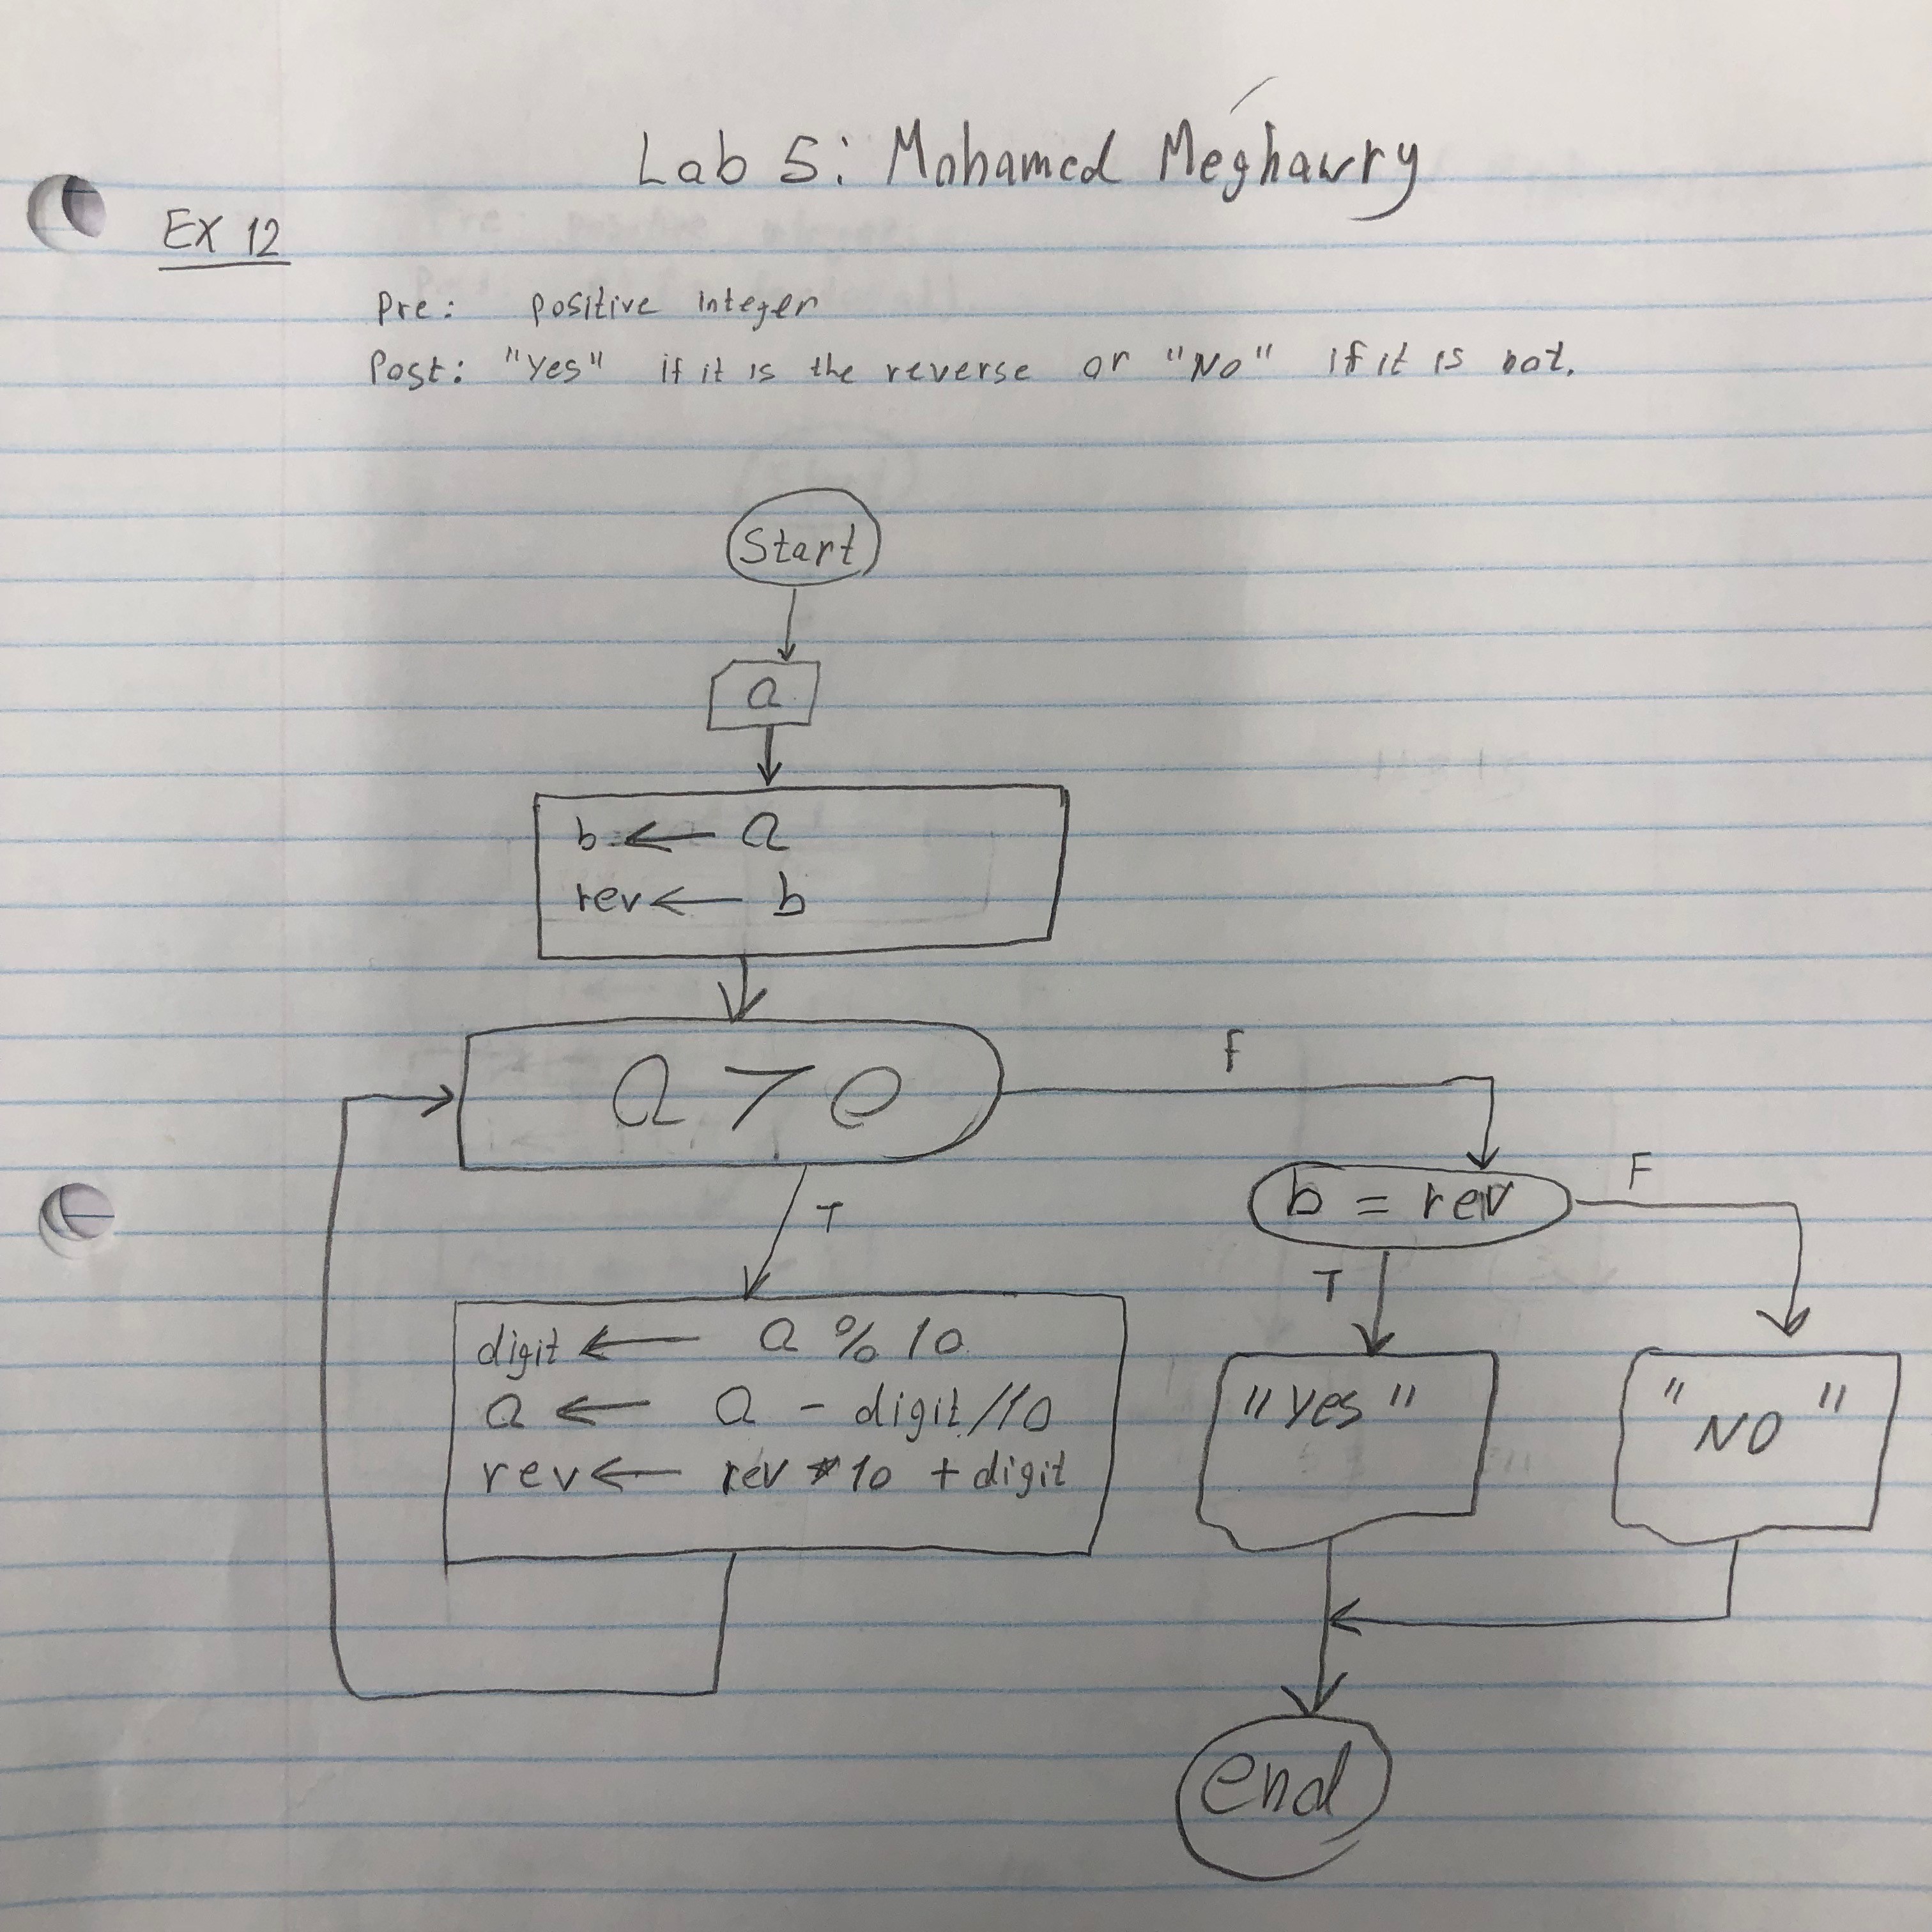 Lab 5: Mohamed Meghawry
EX 12
Pre: positive integer
Post: "Yes" if it is the reverse or "No" if it is not.
Start
a
b ← a
rev ← b
a > 0
F
T
b = rev
F
T
digit ← a % 10
a ← a - digit/10
rev ← rev * 10 + digit
"Yes"
"NO"
end